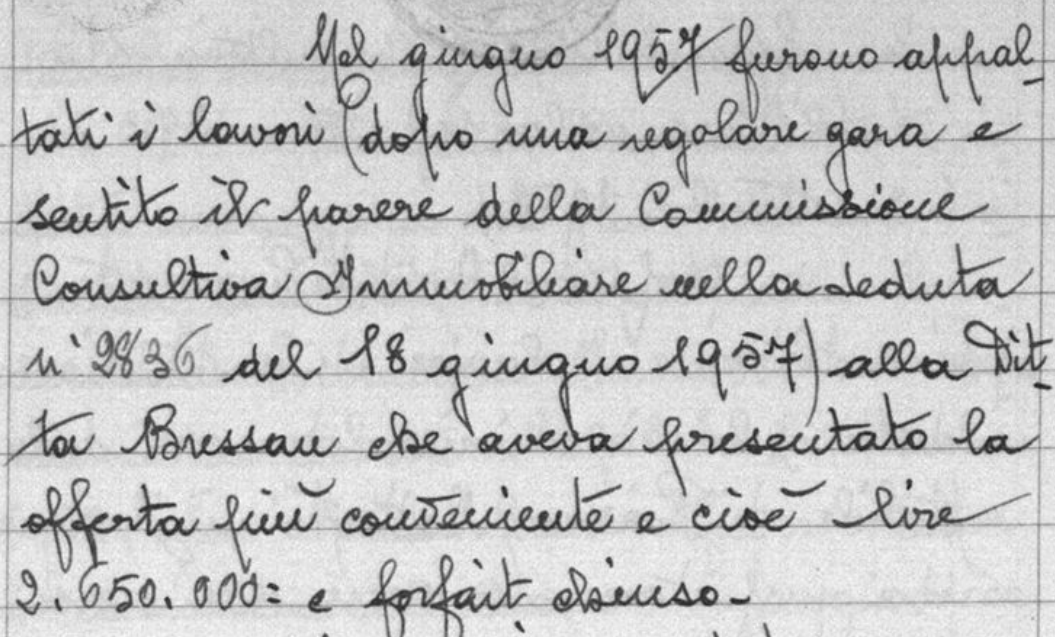 Nel giugno 1957 furono appal-
tati i lavori (dopo una regolare gara e
sentito il parere della Commissione
Consultiva Immobiliare nella seduta
n° 2836 del 18 giugno 1957) alla Dit-
ta Bressan che aveva presentato la
offerta più conveniente e cioè lire
2.650.000= a forfait chiuso-